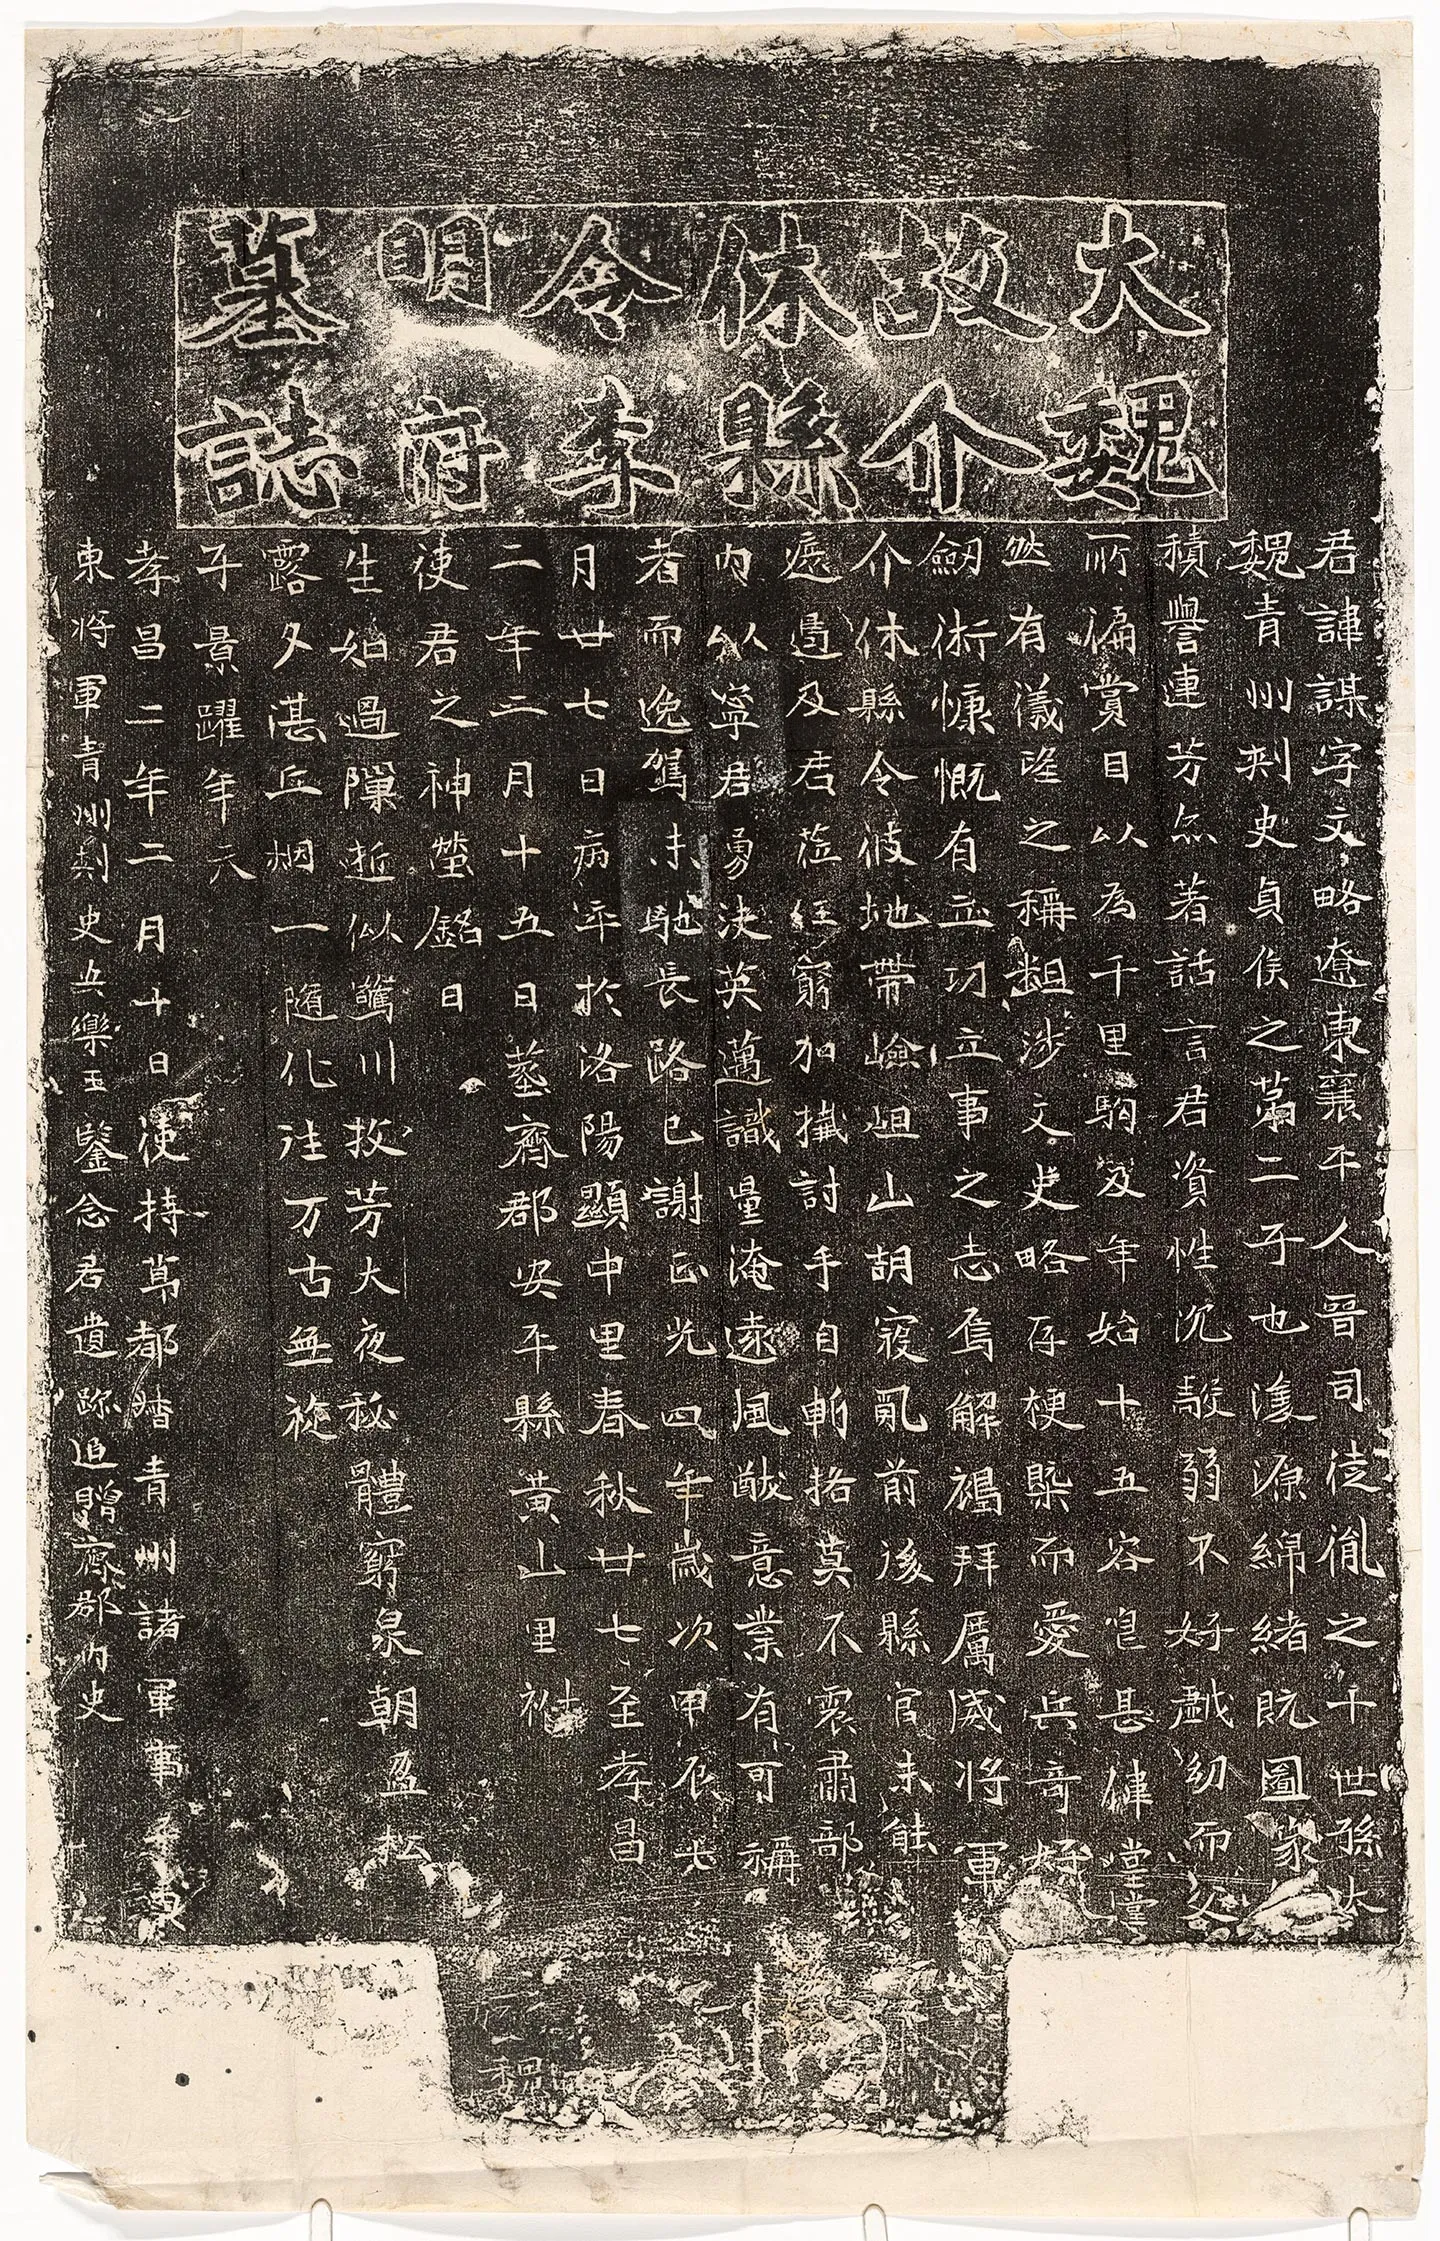 大魏
故介
休縣
令李
明府
墓誌
君諱謀字文略遼東襄平人晉司徒胤之十世孫太
魏青州刾史貞侯之苐二子也濬源綿緒旣圖家
積譽連芳亦著話言君資性沉毅弱不好戲幼而父
所偏賞目以為千里駒及年始十五容皃甚偉堂堂
然有儀望之稱粗涉文史略存梗槩而愛兵奇好
劒術慷慨有立功立事之志焉解褐拜厲威將軍
介休縣令彼地帶嶮岨山胡寇亂前後縣官未能
遮邊及君莅任窮加撝討手自斬挌莫不震肅部
內以寧君勇決英邁識量淹遠風猷意業有可稱
者而逸駕未馳長路已謝正光四年歲次甲辰七
月廿七日病卒於洛陽顯中里春秋廿七至孝昌
二年二月十五日葬齊郡安平縣黃山里祔
使君之神塋銘曰
生如過隟逝似驚川故芳大夜秘體窮泉朝盈松
露夕湛丘烟一隨化往万古無旋
子景躍年六
孝昌二年二月十日使持莭都督青州諸軍事安東
東將軍青州刾史安樂王鑒念君遺跡追贈齊郡內史
魏